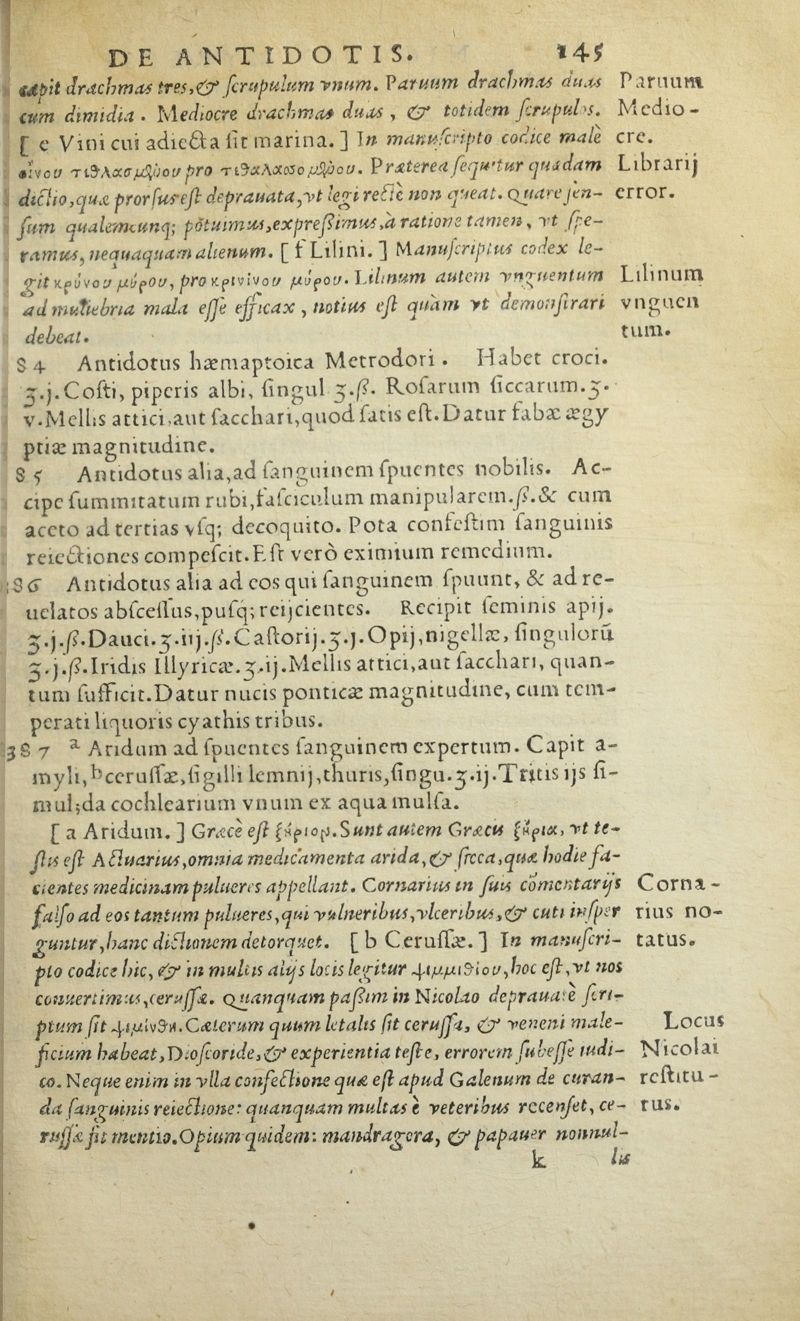 DE ANTIDOTIS. 145
capit drachmas tres,& scrupulum vnum. Paruum drachmas duas Paruum
cum dimidia. Mediocre drachmas duas, & totidem scrupulos. Medio-
[ e Vini cui adiecta sit marina. ] In manuscripto codice male cre.
οἴνου τιθλαχομβρου pro τεθαλασσομβρου. Præterea sequitur quædam Librarij
dictio,quæ prorsus est deprauata,vt legi recte non queat. Quare sen- error.
sum qualemcunq; potuimus,expressimus,a ratione tamen, vt spe-
ramus, nequaquam alienum. [ f Lilini. ] Manuscriptus codex le-
git κρύνου μύρου, pro κρινίνου μύρου. Lilinum autem vnguentum Lilinum
ad muliebria mala esse efficax, notius est quàm vt demonstrari vnguen
debeat. tum.
84 Antidotus hæmaptoica Metrodori. Habet croci.
ʒ.j.Costi, piperis albi, singul ʒ.ß. Rosarum siccarum.ʒ.
v.Mellis attici,aut sacchari,quod satis est.Datur fabæ ægy
ptiæ magnitudine.
85 Antidotus alia,ad sanguinem spuentes nobilis. Ac-
cipe summitatum rubi,fasciculum manipularem.ß.& cum
aceto ad tertias vsq; decoquito. Pota confestim sanguinis
reiectiones compescit.Est verò eximium remedium.
86 Antidotus alia ad eos qui sanguinem spuunt, & ad re-
uelatos abscessus,pusq; reijcientes. Recipit seminis apij.
ʒ.j.ß.Dauci.ʒ.iij.ß.Castorij.ʒ.j.Opij,nigellæ, singulorū
ʒ.j.ß.Iridis Illyricæ.ʒ.ij.Mellis attici,aut sacchari, quan-
tum sufficit.Datur nucis ponticæ magnitudine, cum tem-
perati liquoris cyathis tribus.
387 a Aridum ad spuentes sanguinem expertum. Capit a-
myli,b cerussæ,sigilli lemnij,thuris,singu.ʒ.ij.Tritis ijs si-
mul;da cochlearium vnum ex aqua mulsa.
[ a Aridum. ] Græcè est ξήριον.Sunt autem Græcis ξήρια, vt te-
stis est Actuarius,omnia medicamenta arida,& sicca,quæ hodie fa-
cientes medicinam pulueres appellant. Cornarius in suis cōmentarijs Corna-
falso ad eos tantum pulueres,qui vulneribus,vlceribus,& cuti insper rius no-
guntur,hanc dictionem detorquet. [ b Cerussæ. ] In manuscri- tatus.
pto codice hic, & in multis alijs locis legitur ψιμμιθίου,hoc est,vt nos
conuertimus,cerussæ. Quanquam passim in Nicolao deprauate scri-
ptum sit ψιμίνθη.Cæterum quum letalis sit cerussa, & veneni male- Locus
ficium habeat,Dioscoride,& experientia teste, errorem subesse iudi- Nicolai
co. Neque enim in vlla confectione quæ est apud Galenum de curan- restitu-
da sanguinis reiectione: quanquam multas è veteribus recenset, ce- tus.
russæ fit mentio.Opium quidem: mandragora, & papauer nonnul-
k lis